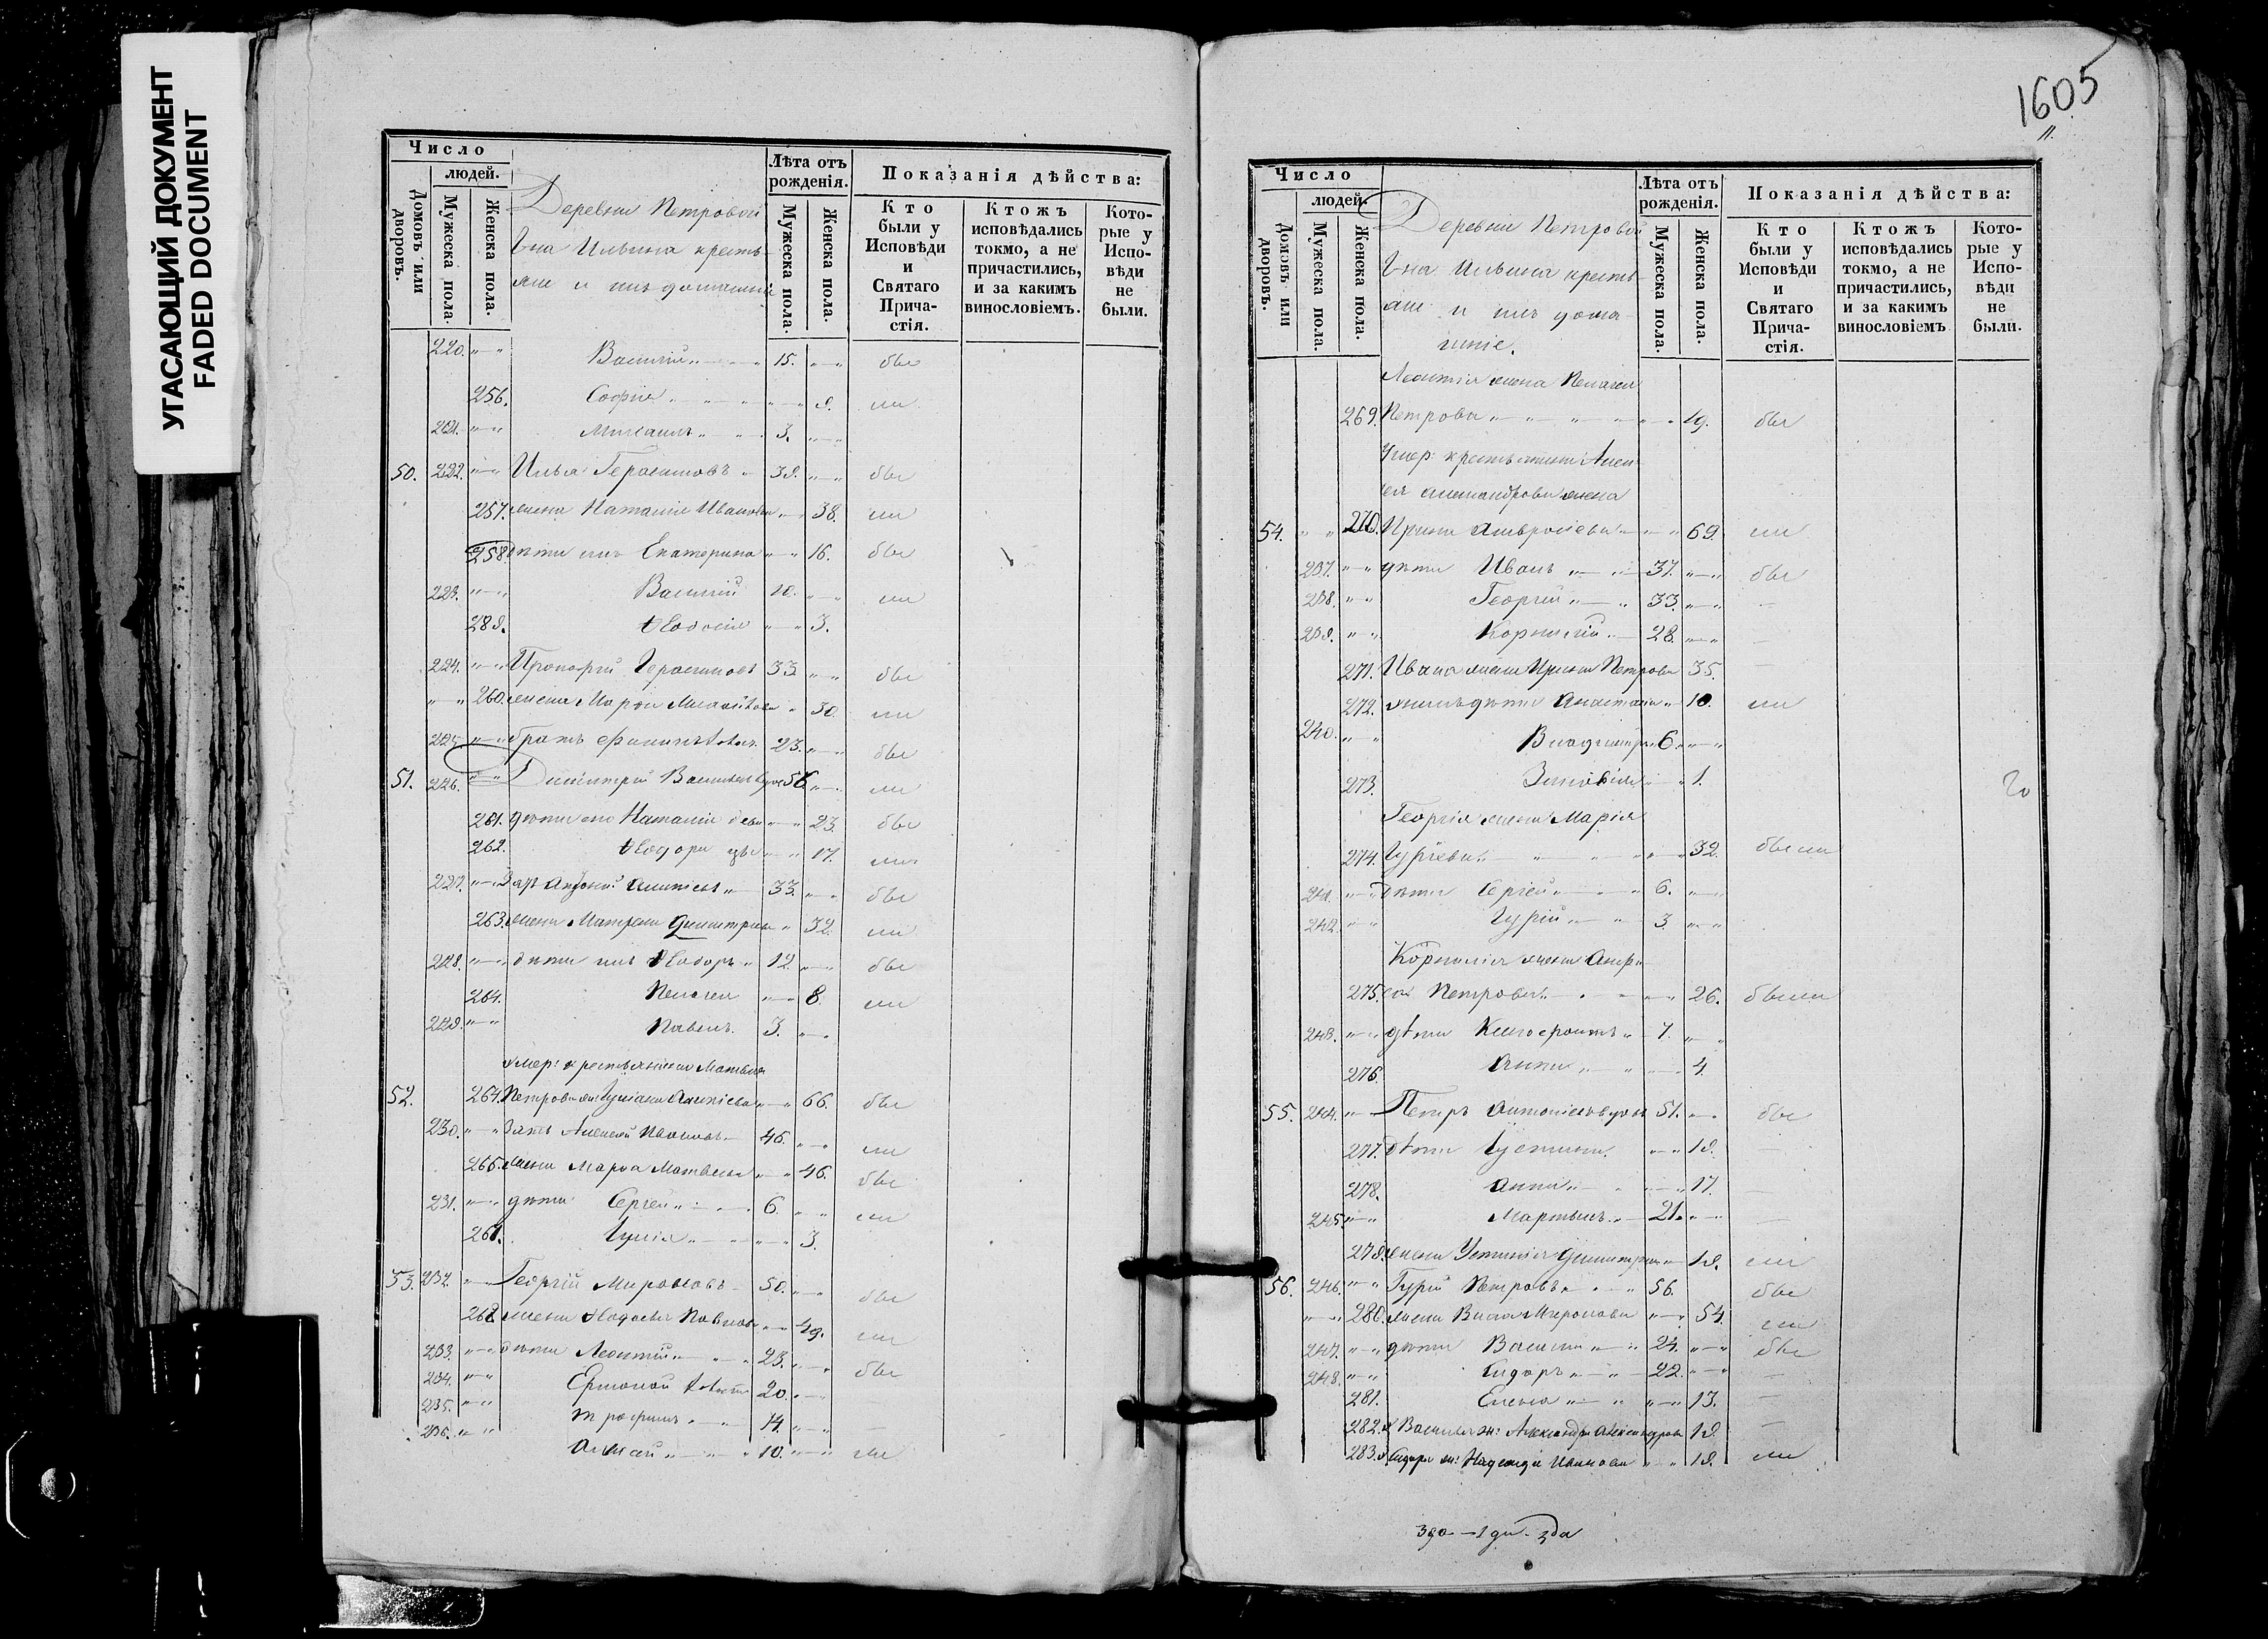 УГАСАЮЩИЙ ДОКУМЕНТ
FADED DOCUMENT
Число
людей.
Домовъ или дворовъ.
Мужеска пола.
Женска пола.
Деревни Петровой
Гна Ильина кресть-
яне и ихъ домашніи
Лѣта отъ рожденія.
Мужеска пола.
Женска пола.
Показанія дѣйства:
Кто были у Исповѣди и Святаго Прича-стія.
Ктожъ исповѣдались токмо, а не причастились, и за какимъ винословіемъ.
Кото-рые у Испо-вѣди не были.
220. Василій 15. бы
256. Софія 9. ли
221. Михаилъ 3.
50. 222. Илья Герасимовъ 39. бы
257. жена Наталія Иванова 38. ли
258. дѣти ихъ Екатерина 16. бы
223. Василій 10. ли
289. Ѳеодосія 3.
224. Прокофій Герасимовъ 33. бы
260. жена Марѳа Михайлова 30. ли
225. братъ Филиппъ 23. бы
51. 226. Димитрій Васильевъ вдов 56. ли
261. дѣти его Наталія девк 23. бы
262. Ѳеодора 17. ли
227. Зять Алипіевъ 33. бы
263. жена Матрена Димитріева 32. ли
228. дѣти ихъ Ѳеодоръ 12. бы
264. Пелагея 8. ли
229. Павелъ 3.
умер: крестьянина Матвея
52. 264. Петрова жен Іуліана Алипіева 66. бы
230. Зять Алексей Ивановъ 46. ли
265. жена Марѳа Матвеева 46. бы
231. дѣти Сергей 6. ли
261. Іулія 3.
53. 232. Георгій Мироновъ 50. бы
268. жена Ѳедосья Павлова 49. ли
233. дѣти Леонтій 23. бы
234. Ермолай 20.
235. Трофимъ 14.
236. Алексей 10. ли
1605
Число
людей.
Домовъ или дворовъ.
Мужеска пола.
Женска пола.
Деревни Петровой
Гна Ильина кресть-
яне и ихъ дома-
шніе.
Лѣта отъ рожденія.
Мужеска пола.
Женска пола.
Показанія дѣйства:
Кто были у Исповѣди и Святаго Прича-стія.
Ктожъ исповѣдались токмо, а не причастились, и за какимъ винословіемъ
Кото-рые у Испо-вѣди не были.
Леонтія жена Пелагея
269. Петрова 19. бы
Умер: крестьянина Алек
сея Александрова жена
54. 270. Ирина Амвросіева 69. ли
237. дѣти Иванъ 37. бы
238. Георгій 33.
239. Корнилій 28.
271. Ивана жена Ирина Петрова 35.
272. дѣти Анастасія 10. ли
240. Владимиръ 6.
273. Зиновія 1.
20
Георгія жена Марія
274. Гуріева 32. были
241. дѣти Сергей 6.
242. Гурій 3.
Корнилія жена Анфи
275. са Петрова 26. были
243. дѣти Ксенофонтъ 7.
276. Анна 4.
55. 244. Петръ Антоніевъ вдов 51. бы
277. дѣти Іустина 19.
278. Анна 17.
245. Мартынъ 21.
279. жена Устинія Димитріева 19. ли
56. 246. Гурій Петровъ 56. бы
280. жена Васа Миронова 54. ли
247. дѣти Василій 24. бы
248. Сидоръ 22.
281. Елена 13.
282. Василья ж: Александра Александрова 19.
283. Сидора ж: Надежда Иванова 19. ли